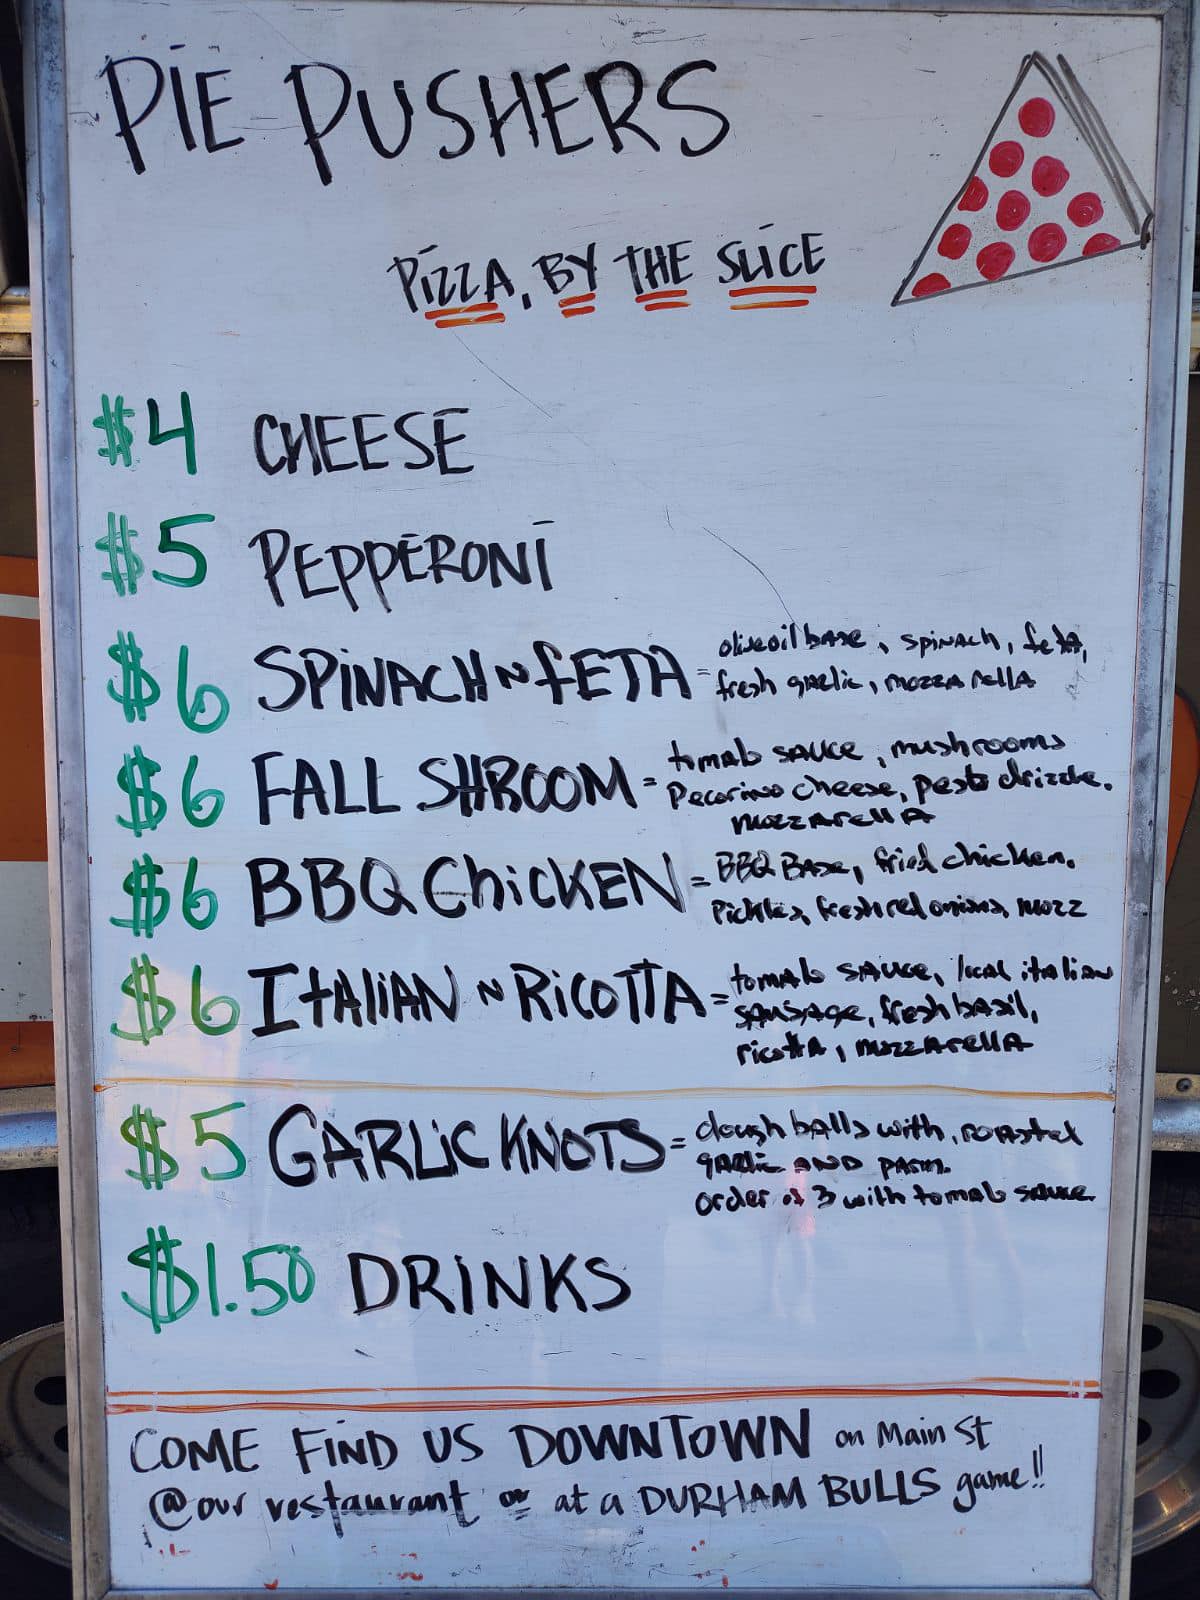 PIE PUSHERS
PIZZA, BY THE SLICE
$4 CHEESE
$5 PEPPERONI
$6 SPINACH N FETA = olive oil base, spinach, feta,
fresh garlic, mozzarella
$6 FALL SHROOM = tomato sauce, mushrooms
Pecorino cheese, pesto drizzle.
mozzarella
$6 BBQ CHICKEN = BBQ Base, fried chicken.
Pickles, fresh red onions, mozz
$6 ITALIAN N RICOTTA = tomato sauce, local italian
sausage, fresh basil,
ricotta, mozzarella
$5 GARLIC KNOTS = dough balls with, roasted
garlic AND parm.
order of 3 with tomato sauce.
$1.50 DRINKS
COME FIND US DOWNTOWN on Main St
@our restaurant or at a DURHAM BULLS game!!